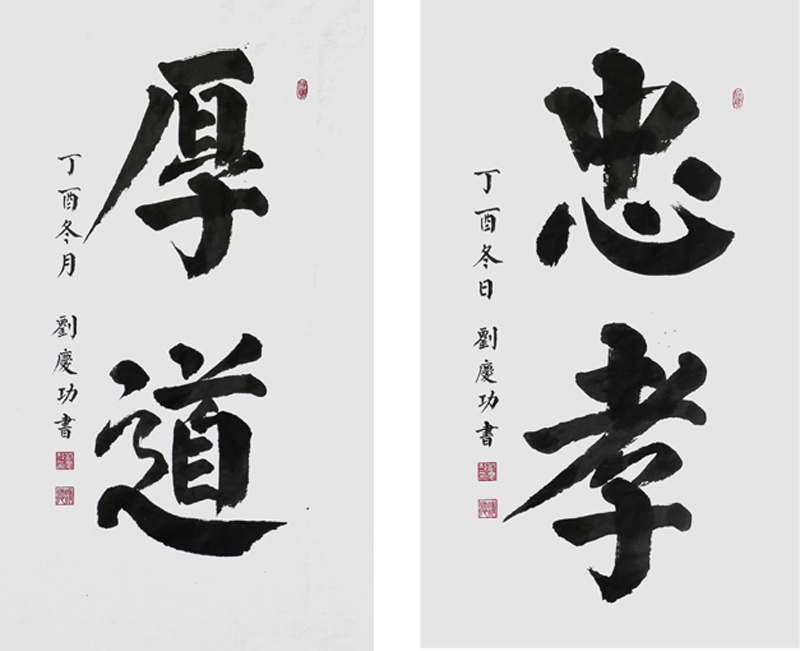 厚道
丁酉冬月 劉慶功書
忠孝
丁酉冬日 劉慶功書